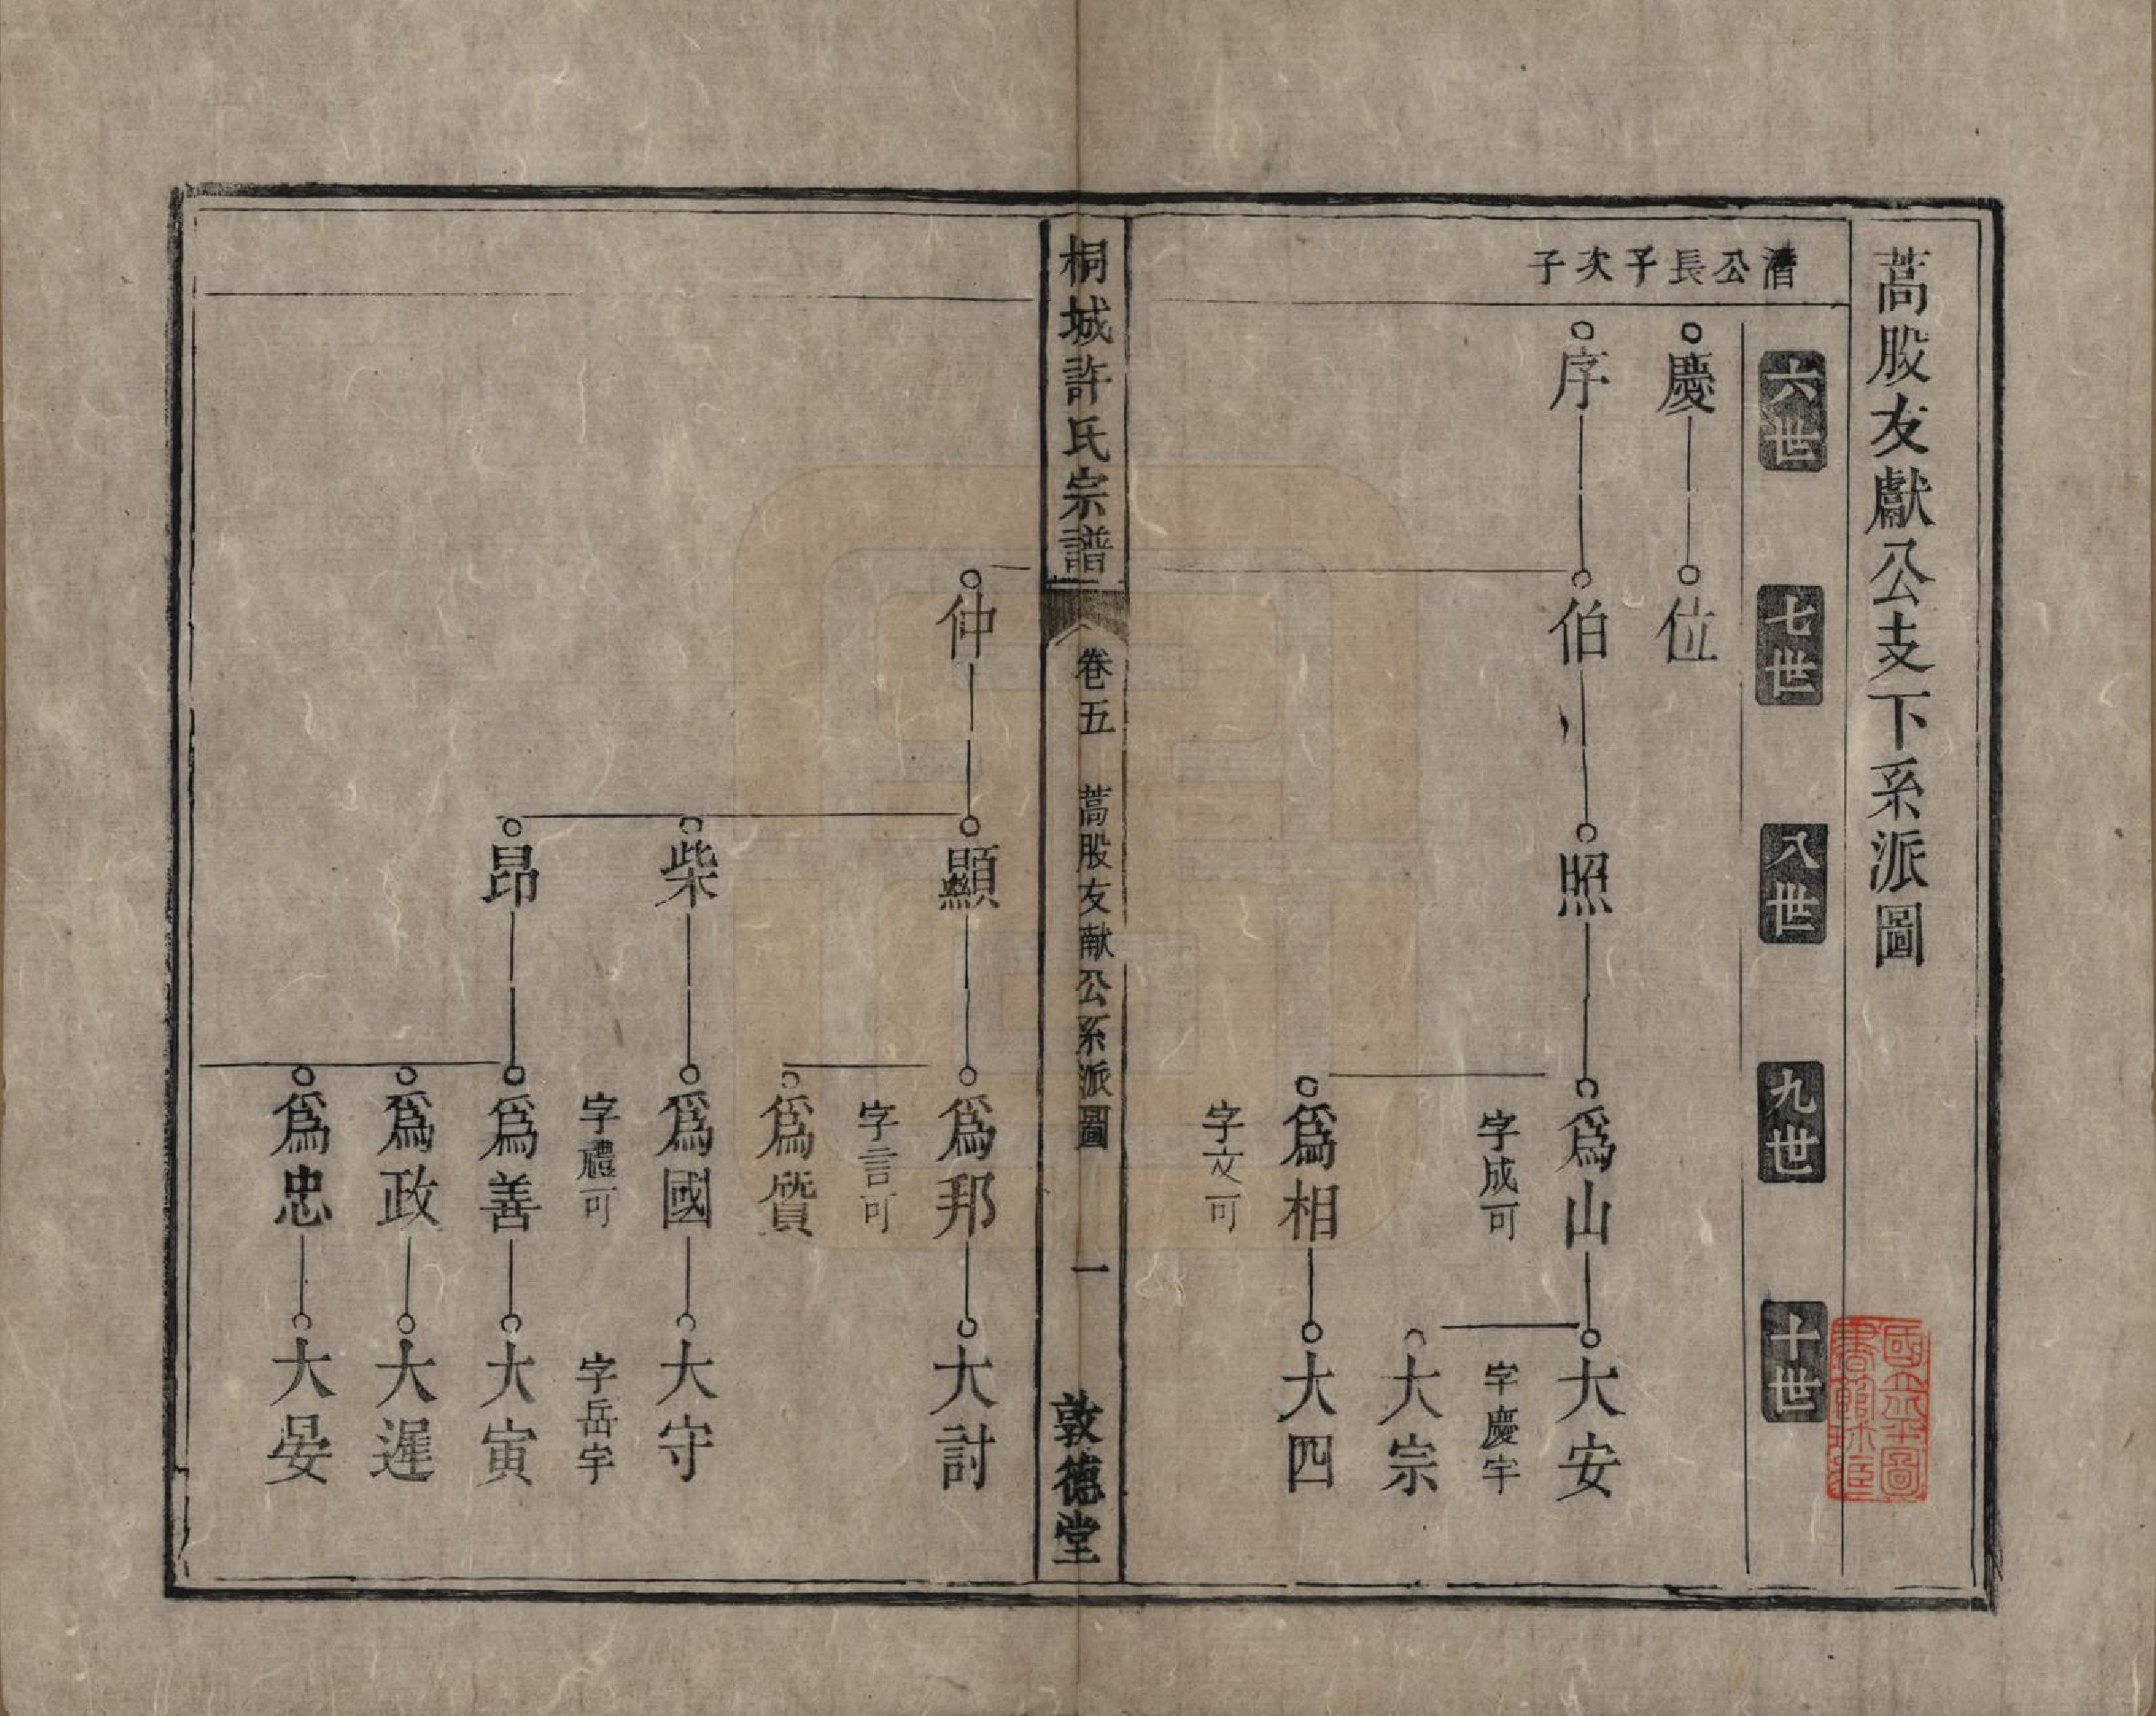 蒿股友獻公支下系派圖
六世
七世
八世
九世
十世
潛公長子次子
慶
位
序
伯
照
爲山
字成可
大安
字慶宇
大宗
爲相
字文可
大四
桐城許氏宗譜
卷五
蒿股友献公系派圖
一
敦德堂
仲
顯
爲邦
字言可
大討
爲質
柴
爲國
字禮可
大守
字岳宇
昂
爲善
大寅
爲政
大遲
爲忠
大晏
國立北平圖書館珍藏